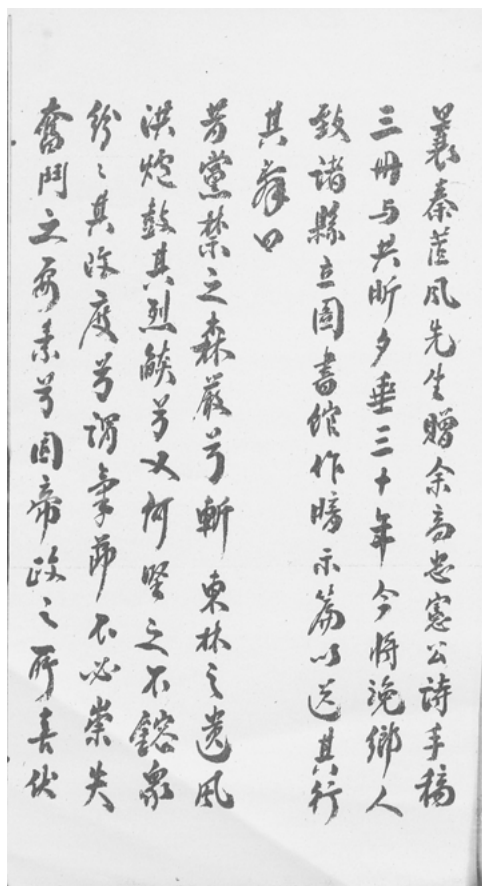 曩秦荁风先生贈余高忠憲公詩手稿
三冊与共昕夕垂三十年今将浼鄉人
致諸縣立圖書館作暗示篇以送其行
其辞曰
昔黨禁之森嚴兮斬東林之遺風
洪爐鼓其烈燄兮又何堅之不鎔衆
紛〻其改度兮謂氣莭不必崇失
奮鬥之要素兮固帝政之所喜伏